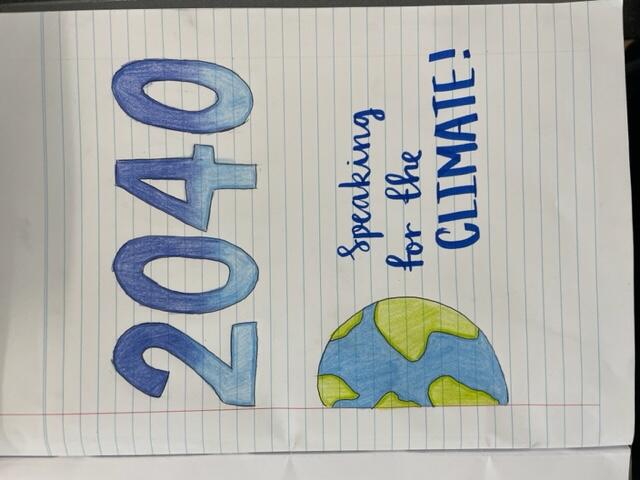 2040
Speaking
for the
CLIMATE!